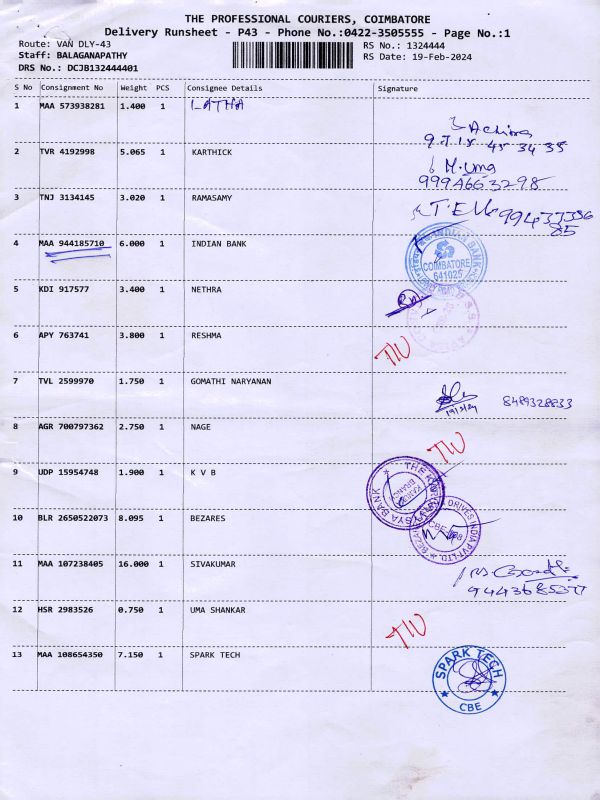 THE PROFESSIONAL COURIERS, COIMBATORE
Delivery Runsheet - P43 - Phone No.:0422-3505555 - Page No.:1
Route: VAN DLY-43 RS No.: 1324444
Staff: BALAGANAPATHY RS Date: 19-Feb-2024
DRS No.: DCJB132444401
S No Consignment No Weight PCS Consignee Details Signature
1 MAA 573938281 1.400 1 LATHA
2 TVR 4192998 5.065 1 KARTHICK
M.Uma
3 TNJ 3134145 3.020 1 RAMASAMY
4 MAA 944185710 6.000 1 INDIAN BANK
INDIAN BANK
COIMBATORE
641025
5 KDI 917577 3.400 1 NETHRA
6 APY 763741 3.800 1 RESHMA
7 TVL 2599970 1.750 1 GOMATHI NARYANAN
19/2/24 8489328833
8 AGR 700797362 2.750 1 NAGE
9 UDP 15954748 1.900 1 K V B
10 BLR 2650522073 8.095 1 BEZARES
DRIVES INDIA PVT LTD.
11 MAA 107238405 16.000 1 SIVAKUMAR
12 HSR 2983526 0.750 1 UMA SHANKAR
13 MAA 108654350 7.150 1 SPARK TECH
SPARK TECH
CBE